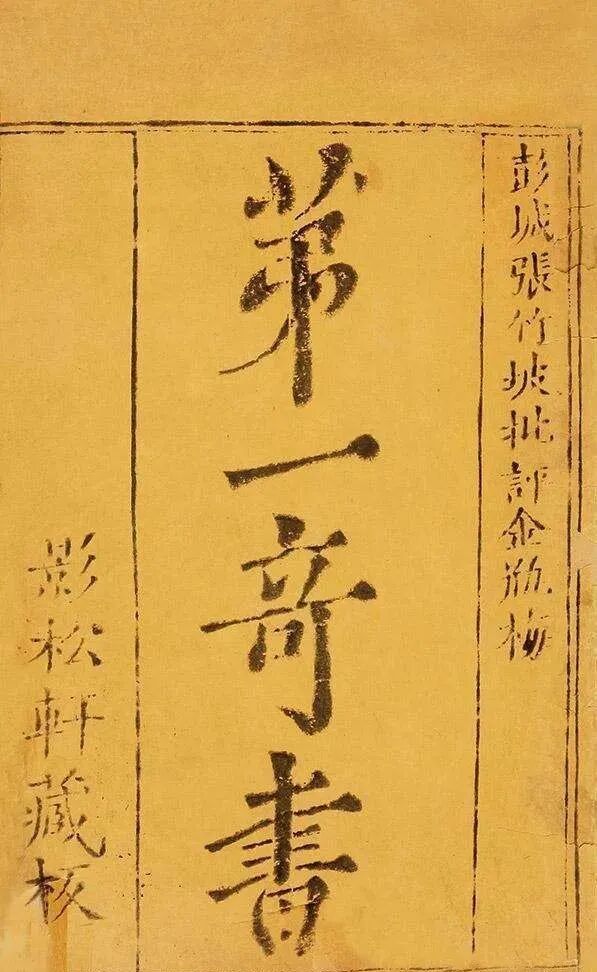 彭城張竹坡批評金瓶梅
第一奇書
影松軒藏板